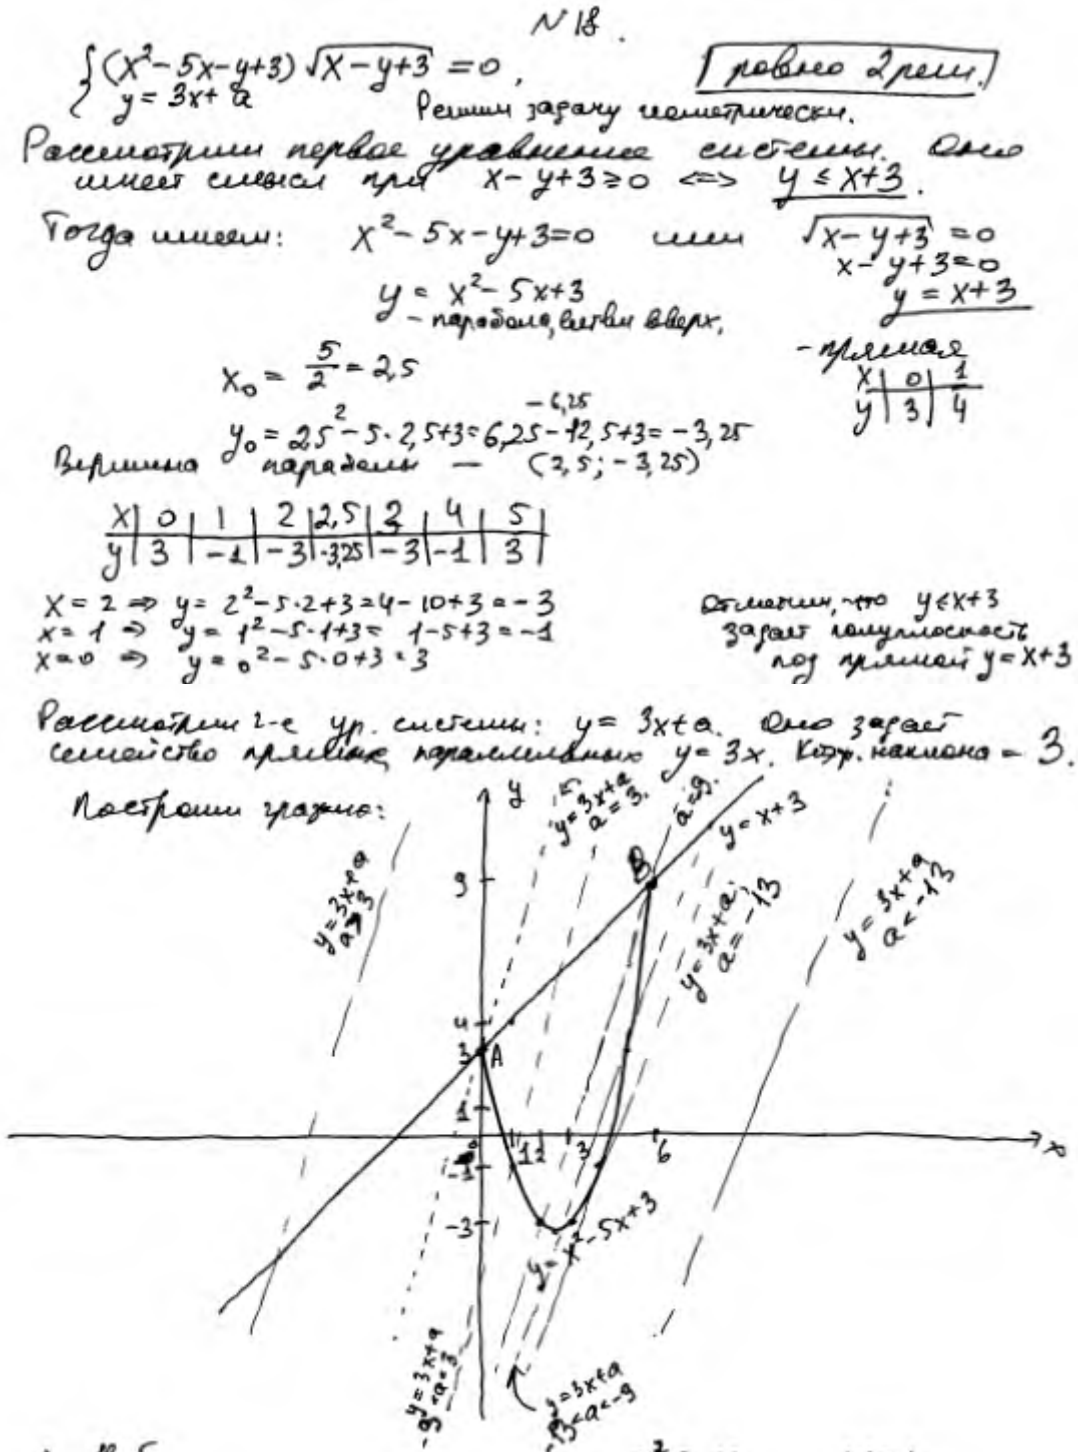 N 18.
{ (x² - 5x - y + 3) √(x - y + 3) = 0,
y = 3x + a
ровно 2 реш.
Решим задачу геометрически.
Рассмотрим первое уравнение системы. Оно
имеет смысл при x - y + 3 ≥ 0 <=> y ≤ x + 3.
Тогда имеем: x² - 5x - y + 3 = 0 или √(x - y + 3) = 0
x - y + 3 = 0
y = x² - 5x + 3
y = x + 3
- парабола, ветви вверх,
- прямая
x | 0 | 1
y | 3 | 4
x₀ = 5/2 = 2,5
- 6,25
y₀ = 2,5² - 5·2,5 + 3 = 6,25 - 12,5 + 3 = -3,25
Вершина параболы — (2,5; -3,25)
x | 0 | 1 | 2 | 2,5 | 3 | 4 | 5 |
y | 3 | -1 | -3 | -3,25 | -3 | -1 | 3 |
x = 2 => y = 2² - 5·2 + 3 = 4 - 10 + 3 = -3
x = 1 => y = 1² - 5·1 + 3 = 1 - 5 + 3 = -1
x = 0 => y = 0² - 5·0 + 3 = 3
Отметим, что y ≤ x + 3
задает полуплоскость
под прямой y = x + 3
Рассмотрим 2-е ур. системы: y = 3x + a. Оно задает
семейство прямых, параллельных y = 3x. Коэф. наклона = 3.
Построим график:
y
y = 3x + a
a = 3.
a = -9.
y = x + 3
y = 3x + a
a > 3
B
9
y = 3x + a;
a = -13
y = 3x + a
a < -13
4
3
A
1
0
1 2 3 6
x
-1
-3
y = x² - 5x + 3
y = 3x + a
-9 < a < 3
y = 3x + a
-13 < a < -9